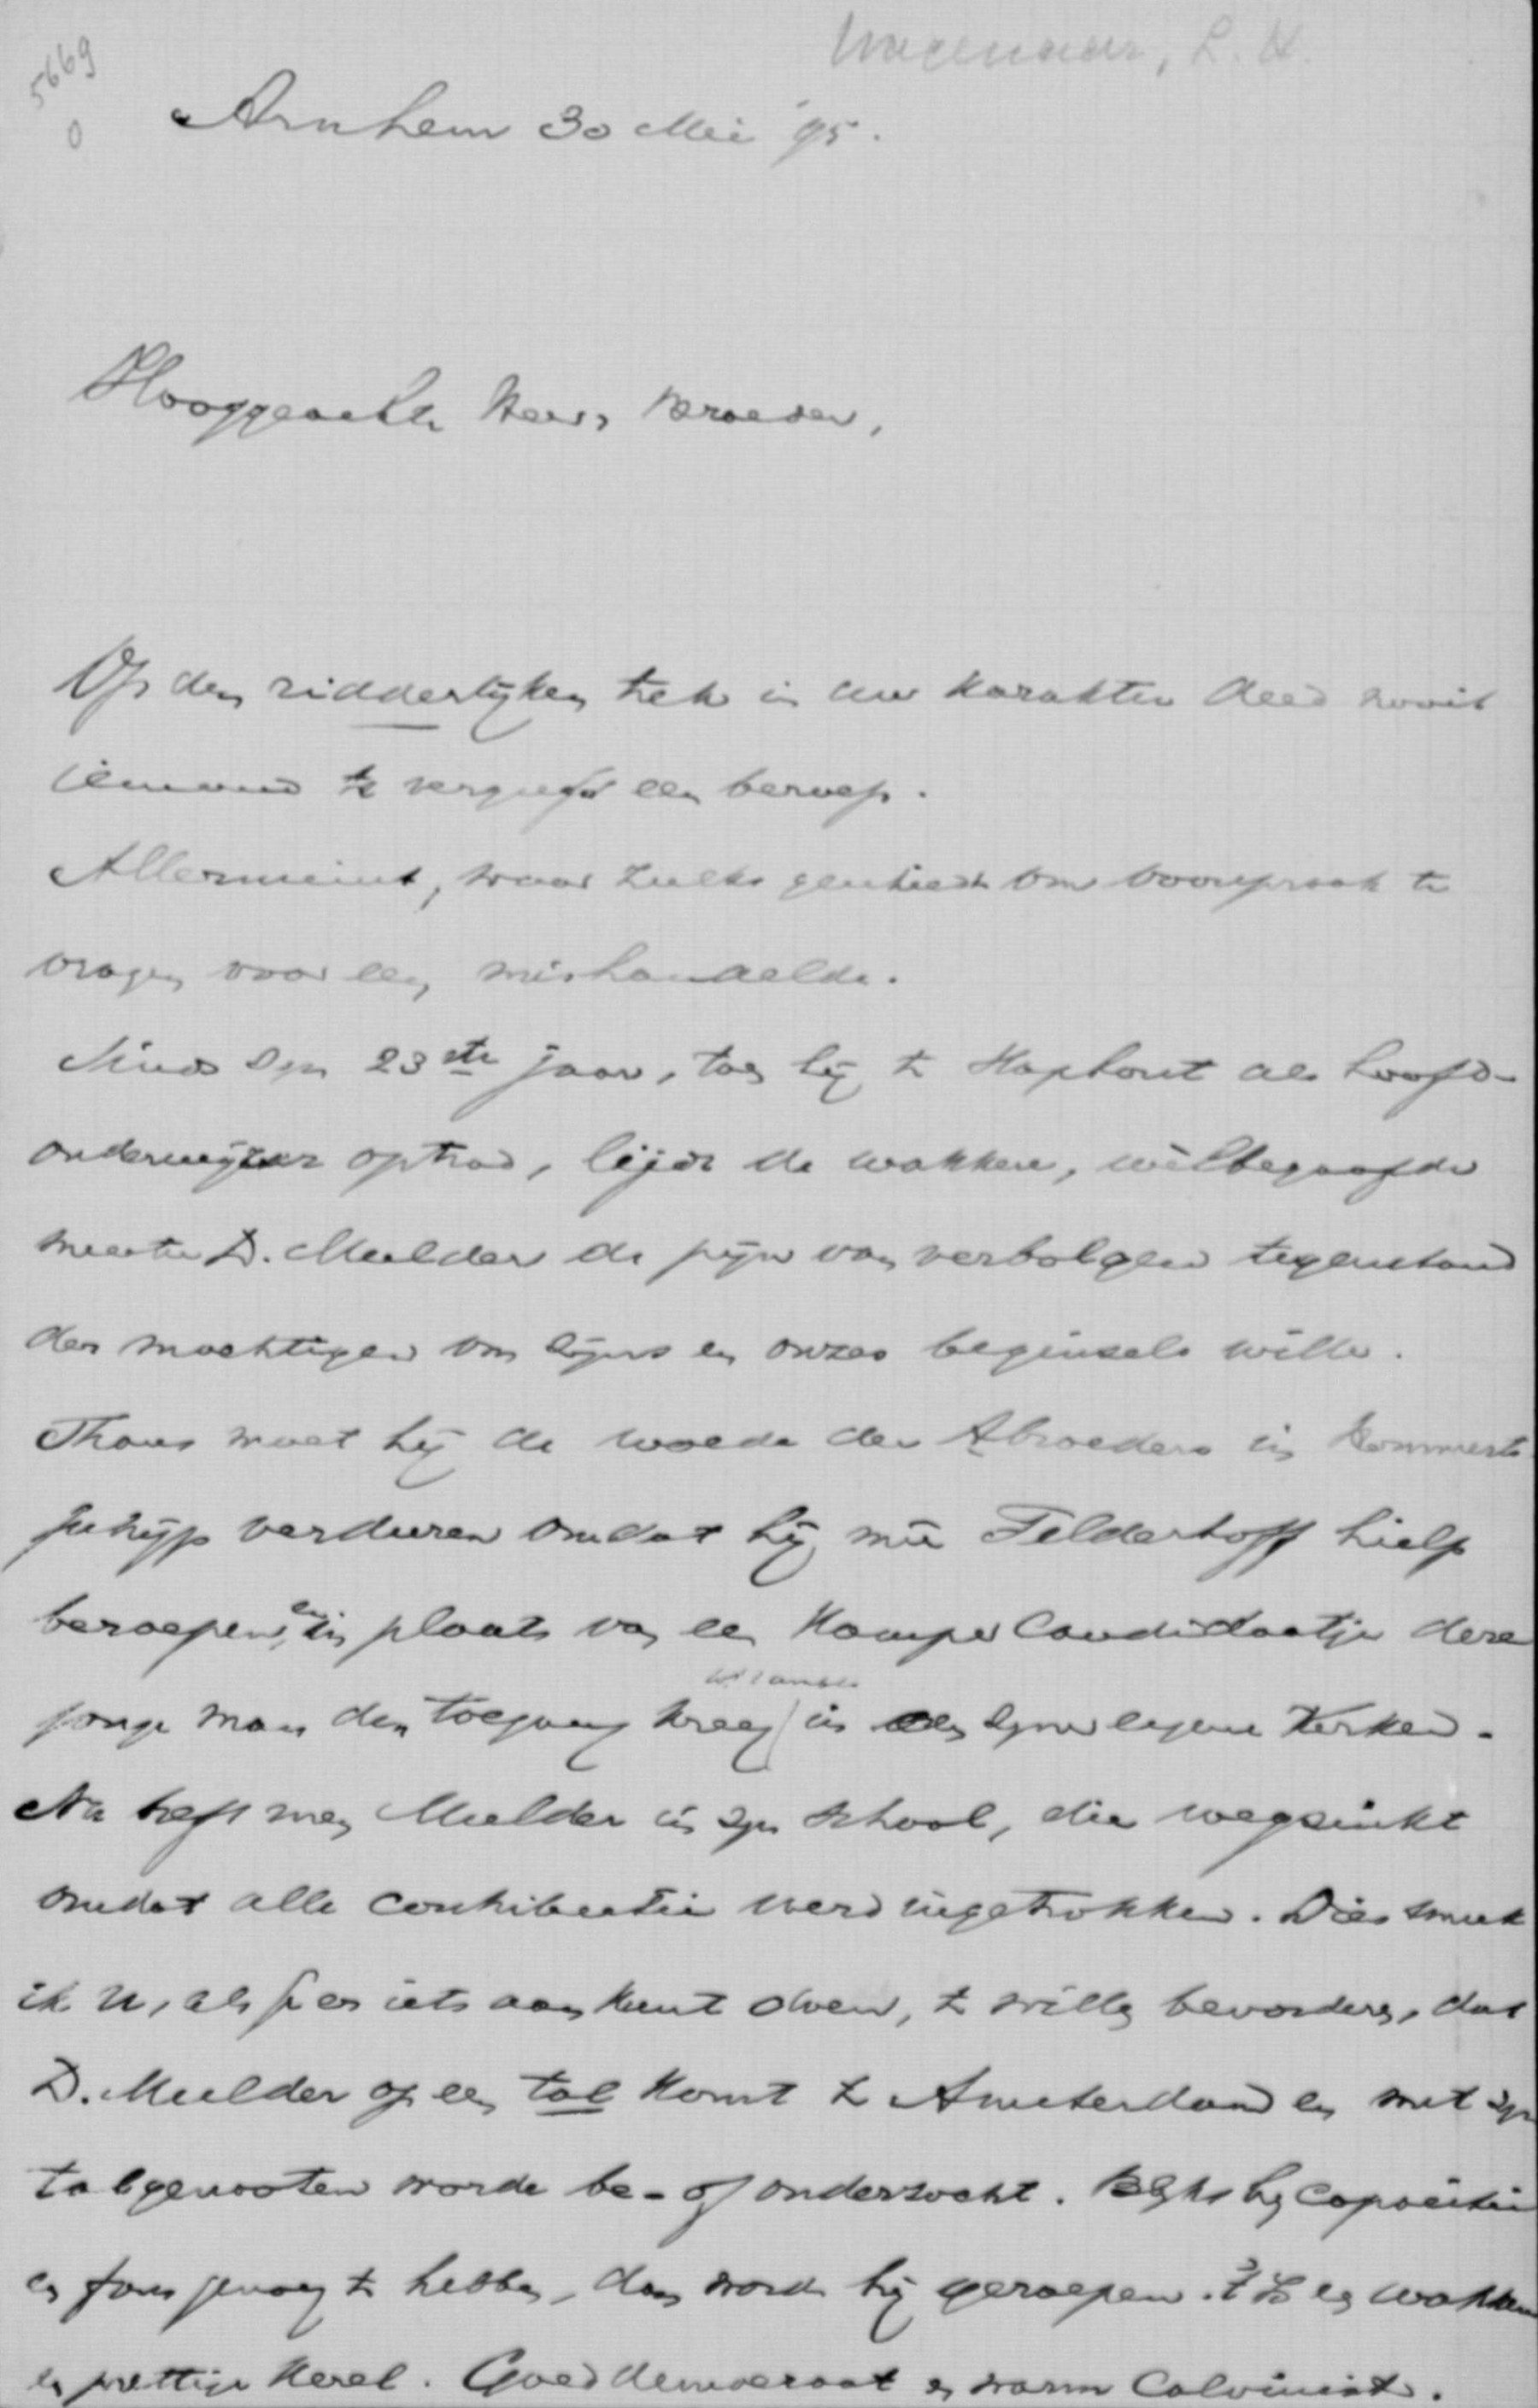 Wagenaar, L. H.
5669
0
Arnhem 30 Mei '95.
Hooggeachte Heer, Broeder,
Op den ridderlijken trek in uw karakter deed nooit
iemand te vergeefs een beroep.
Allerminst, waar zulks geschiedt om voorspraak te
vragen voor een mishandelde.
Sinds zijn 23ste jaar, toen hij te Staphorst als hoofd-
onderwijzer optrad, lijdt de wakkere, wèlbegaafde
meester D. Mulder de pijn van verbolgen tegenstand
der machtigen om zijns en onzes beginsels wille.
Thans moet hij de woede der Abroeders in Bommers
verduren omdat hij mee Felderhoff hielp
beroepen, en in plaats van een Kamper Candidaatje deze
jonge man den toegang kreeg in zijne eigene Kerken.
Nu treft men Mulder in zijn school, die wegzinkt
omdat alle contributie werd ingetrokken. Dies smeek
ik U, als je er iets aan kunt doen, te willen bevorderen, dat
D. Mulder op een tal komt te Amsterdam en met zijn
talgenooten worde be- of onderzocht. Blijkt hij capaciteit
en fons genoeg te hebben, dan worde hij geroepen. 't Is een wakkere
en prettige kerel. Goed democraat en warm Calvinist.